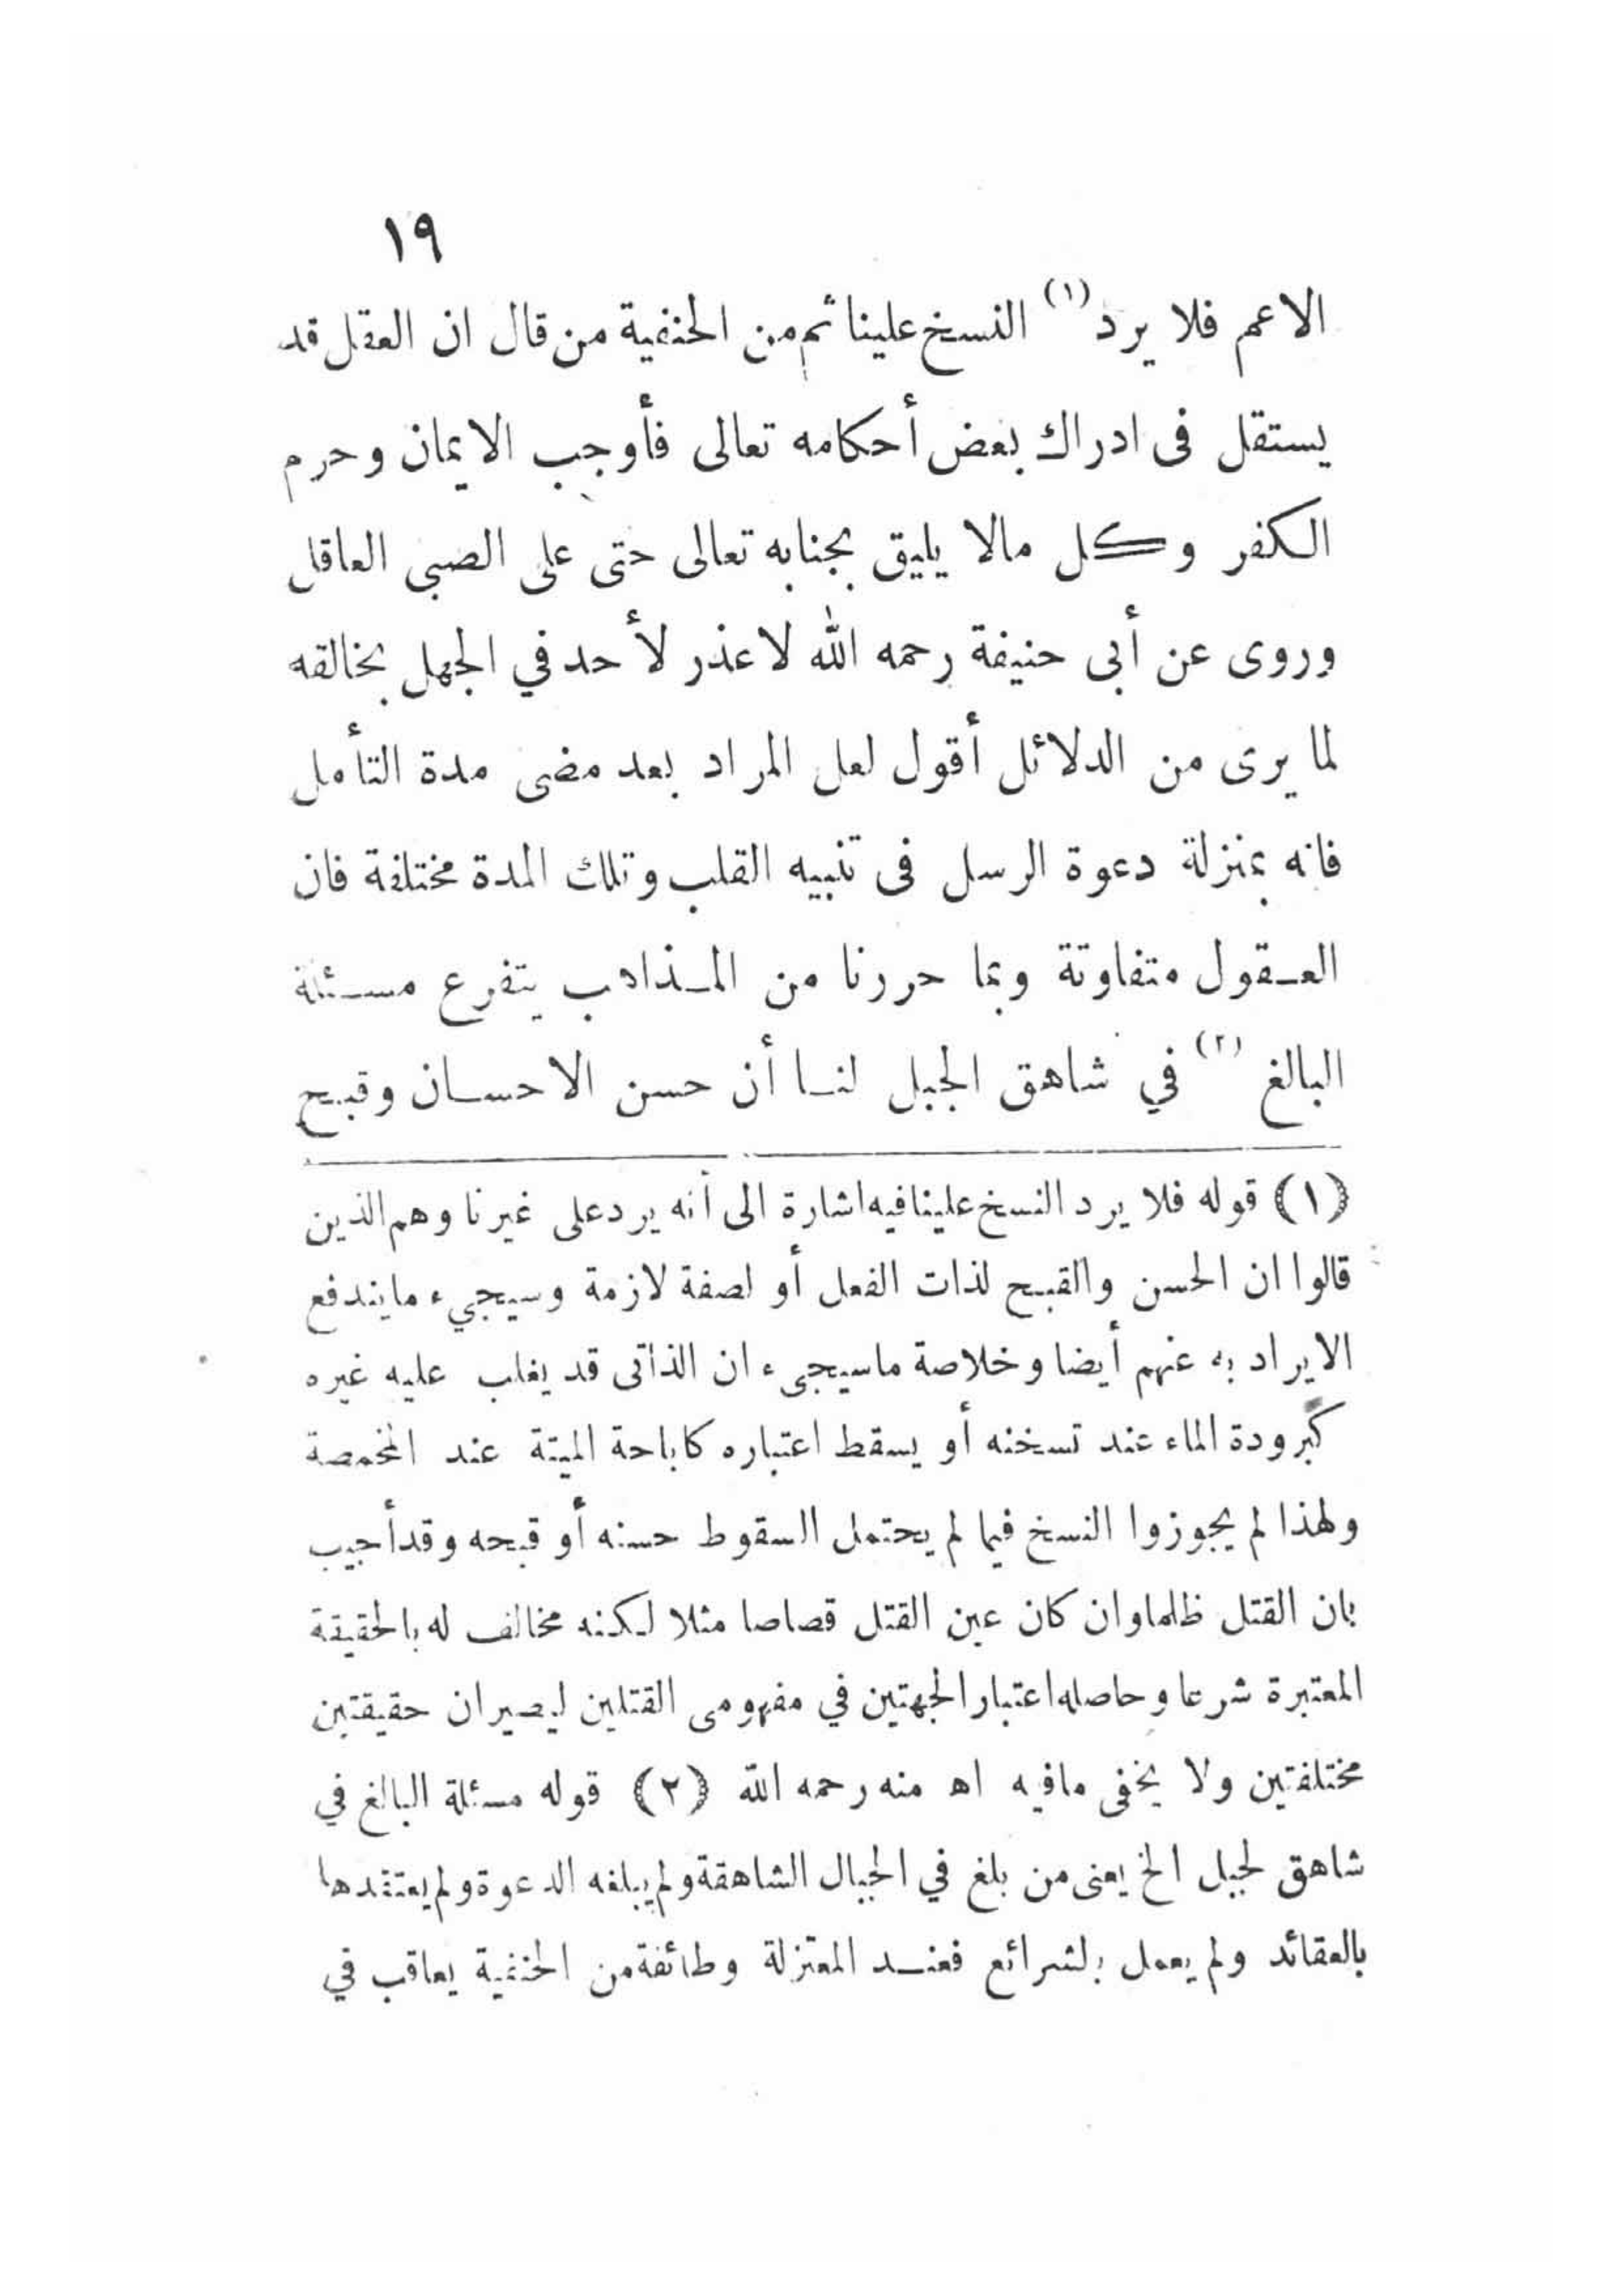 ١٩
الاعم فلا يرد (١) النسخ علينا ثم من الحنفية من قال ان العقل قد
يستقل فى ادراك بعض أحكامه تعالى فأوجب الايمان وحرم
الكفر وكل مالا يليق بجنابه تعالى حتى على الصبى العاقل
وروى عن أبى حنيفة رحمه الله لا عذر لأحد في الجهل بخالقه
لما يرى من الدلائل أقول لعل المراد بعد مضى مدة التأمل
فانه بمنزلة دعوة الرسل فى تنبيه القلب وتلك المدة مختلفة فان
العـقول متفاوتة وبما حررنا من المـذاهب يتفرع مسـئلة
البالغ (٢) في شاهق الجبل لنـا أن حسن الاحسـان وقبح
(١) قوله فلا يرد النسخ علينا فيه اشارة الى أنه يرد على غيرنا وهم الذين
قالوا ان الحسن والقبح لذات الفعل أو لصفة لازمة وسيجيء مايندفع
الايراد به عنهم أيضا وخلاصة ماسيجىء ان الذاتى قد يغلب عليه غيره
كبرودة الماء عند تسخنه أو يسقط اعتباره كاباحة الميتة عند المخمصة
ولهذا لم يجوزوا النسخ فيما لم يحتمل السقوط حسنه أو قبحه وقد أجيب
بان القتل ظلما وان كان عين القتل قصاصا مثلا لكنه مخالف له بالحقيقة
المعتبرة شرعا وحاصله اعتبار الجهتين في مفهومى القتلين ليصيران حقيقتين
مختلفتين ولا يخفى مافيه اه منه رحمه الله (٢) قوله مسئلة البالغ في
شاهق لجبل الخ يعنى من بلغ في الجبال الشاهقة ولم يبلغه الدعوة ولم يعتقدها
بالعقائد ولم يعمل بلشرائع فعنـد المعتزلة وطائفة من الحنفية يعاقب في